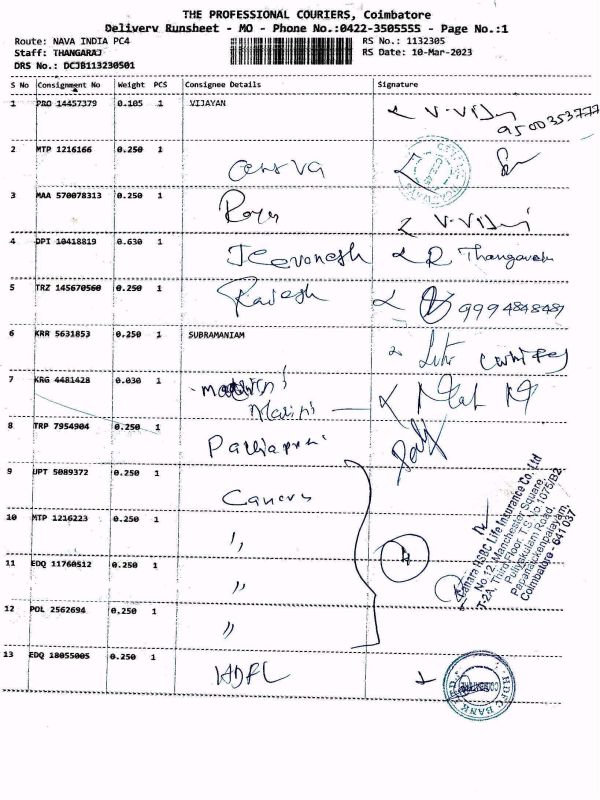 THE PROFESSIONAL COURIERS, Coimbatore
Delivery Runsheet - MO - Phone No.:0422-3505555 - Page No.:1
Route: NAVA INDIA PC4 RS No.: 1132305
Staff: THANGARAJ RS Date: 10-Mar-2023
DRS No.: DCJB113230501
S No Consignment No Weight PCS Consignee Details Signature
1 PRO 14457379 0.105 1 VIJAYAN
9500353777
2 MTP 1216166 0.250 1
3 MAA 570078313 0.250 1
4 DPI 10418819 0.630 1 Jeevanesh R Thangavelu
5 TRZ 145670560 0.250 1 Rajesh 9994848489
6 KRR 5631853 0.250 1 SUBRAMANIAM
7 KRG 4481428 0.030 1
Malini
8 TRP 7954904 0.250 1
9 UPT 5089372 0.250 1
10 MTP 1216223 0.250 1 "
4
11 EDQ 11760512 0.250 1 "
12 POL 2562694 0.250 1 "
Canara HSBC Life Insurance Co. Ltd
No 12, Manchester Square,
T-2A, Third Floor, T.S. No.1075/B2,
Puliyakulam Road,
Papanaickenpalayam,
Coimbatore - 641 037
13 EDQ 18055005 0.250 1 HDFC
HDFC BANK LTD